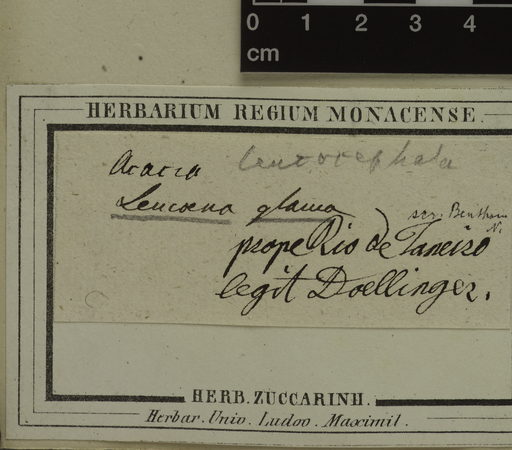 0 1 2 3 4
cm
HERBARIUM REGIUM MONACENSE.
Acacia leucocephala
Leucaena glauca
scr. Bentham
N.
prope Rio de Janeiro
legit Doellinger.
HERB. ZUCCARINII.
Herbar. Univ. Ludov. Maximil.